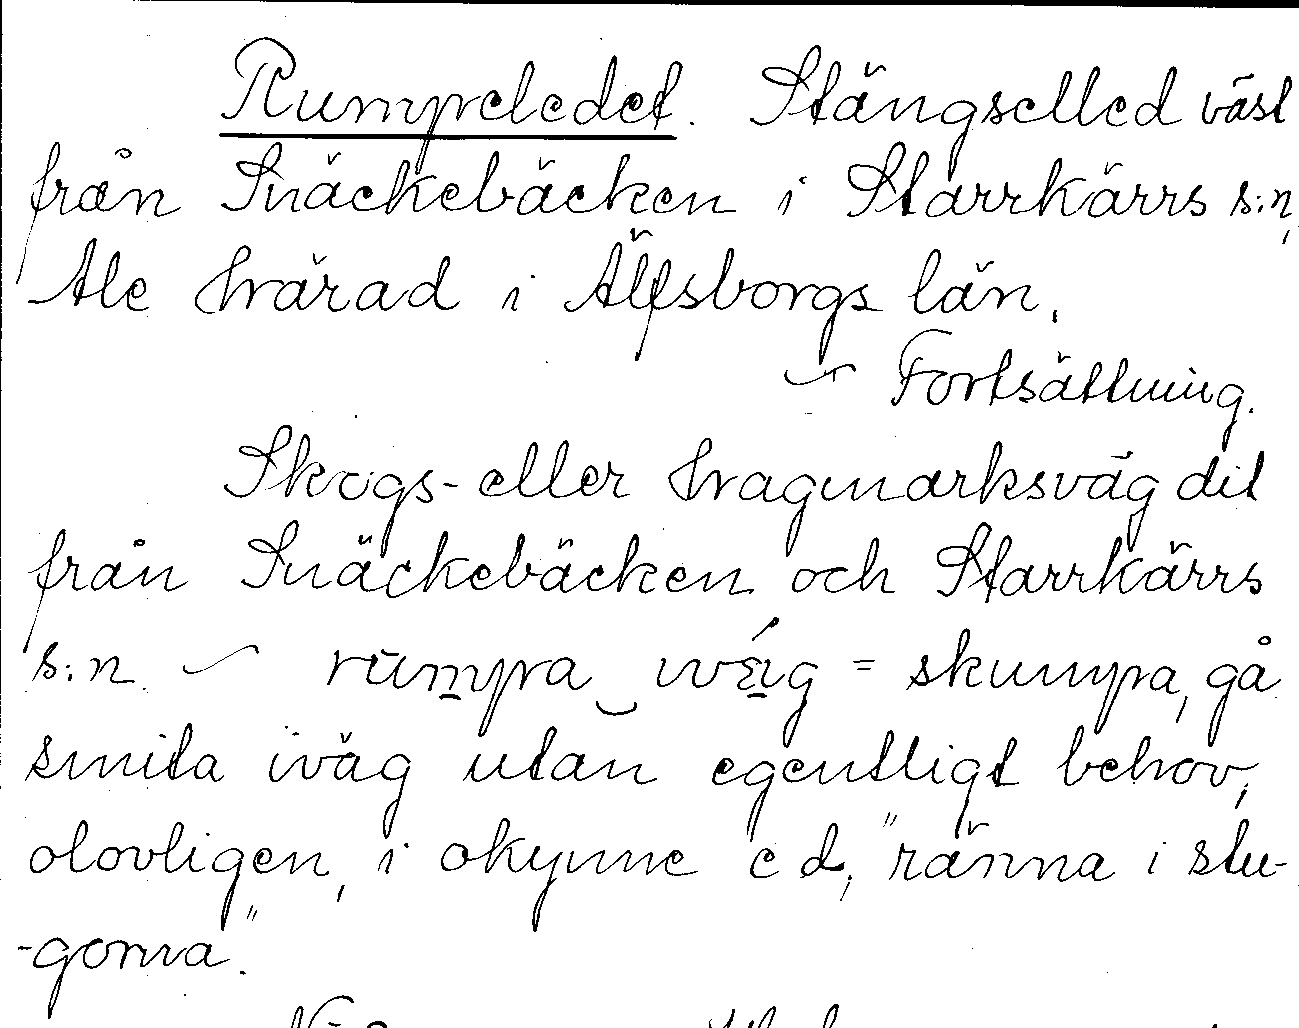 Rumpeledet. Stängselled väst
från Snäckebäcken i Starrkärrs s:n,
Ale härad i Älfsborgs län.
~ Fortsättning.
Skogs- eller hagmarksväg dit
från Snäckebäcken och Starrkärrs
s:n ~ rumpa = skumpa, gå
smita iväg utan egentligt behov,
olovligen, i okynne e d, "ränna i stu-
-gorna".